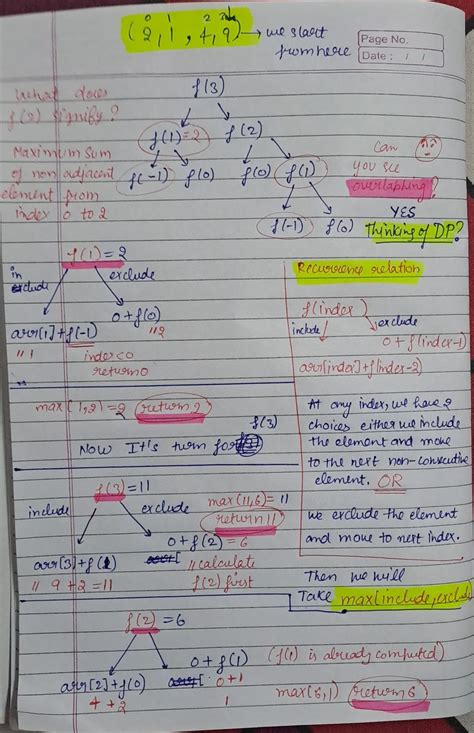 0 2 3
(2,1,4,9) → we start
from here
Page No.
Date : / /
What does
f(2) signify?
Maximum sum
of non adjacent
element from
index 0 to 2
f(3)
f(1)=2 f(2)
f(-1) f(0) f(0) f(1)
f(-1) f(0)
Can
you see
overlapping?
YES
Thinking of DP?
f(1) = 2
include exclude
arr[1]+f(-1) 0+f(0)
"1 "2
index<0
return 0
max(1,2)=2 (return 2)
f(3)
Now It's turn for
f(3)=11
include exclude
max(11,6) = 11
(return 11)
0+f(2) = 6
arr[3]+f(1) arr[ "calculate
" 9+2=11 f(2) first
f(2) = 6
arr[2]+f(0) 0+f(1)
4+2 arr[: 0+1
1
(f(1) is already computed)
max(6,1) (return 6)
Recurrence relation
f(index)
include exclude
0 + f(index-1)
arr[index]+f(index-2)
At any index, we have 2
choices either we include
the element and move
to the next non-consecutive
element. OR
we exclude the element
and move to next index.
Then we will
Take max(include, exclude